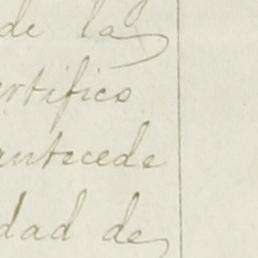 de la
rtifico
antecede
dad de